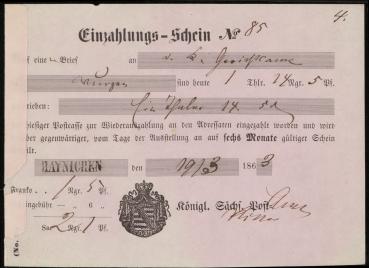 4.
Einzahlungs-Schein No 85
f eine Brief an d. K. Gerichtsamt
Wurzen sind heute 1 Thlr. 14 Ngr. 5 Pf.
rieben: Ein Thaler 14. 5
hiesiger Postcasse zur Wiederauszahlung an den Adressaten eingezahlt worden und wird
ber gegenwärtiger, vom Tage der Ausstellung an auf sechs Monate gültiger Schein
eilt.
HAYNICHEN den 19/3 1863
Franko 1 Ngr. 5 Pf.
eingebühr — „ 6 „
Sa. 2 Ngr. 1 Pf.
Königl. Sächs. Post-
(No.